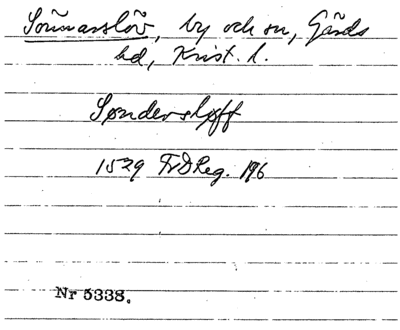 Sönnarslöv, by och sn, Gärds
hd, Krist. l.
Søndersløff
1529 FrDReg. 196
Nr 5338.